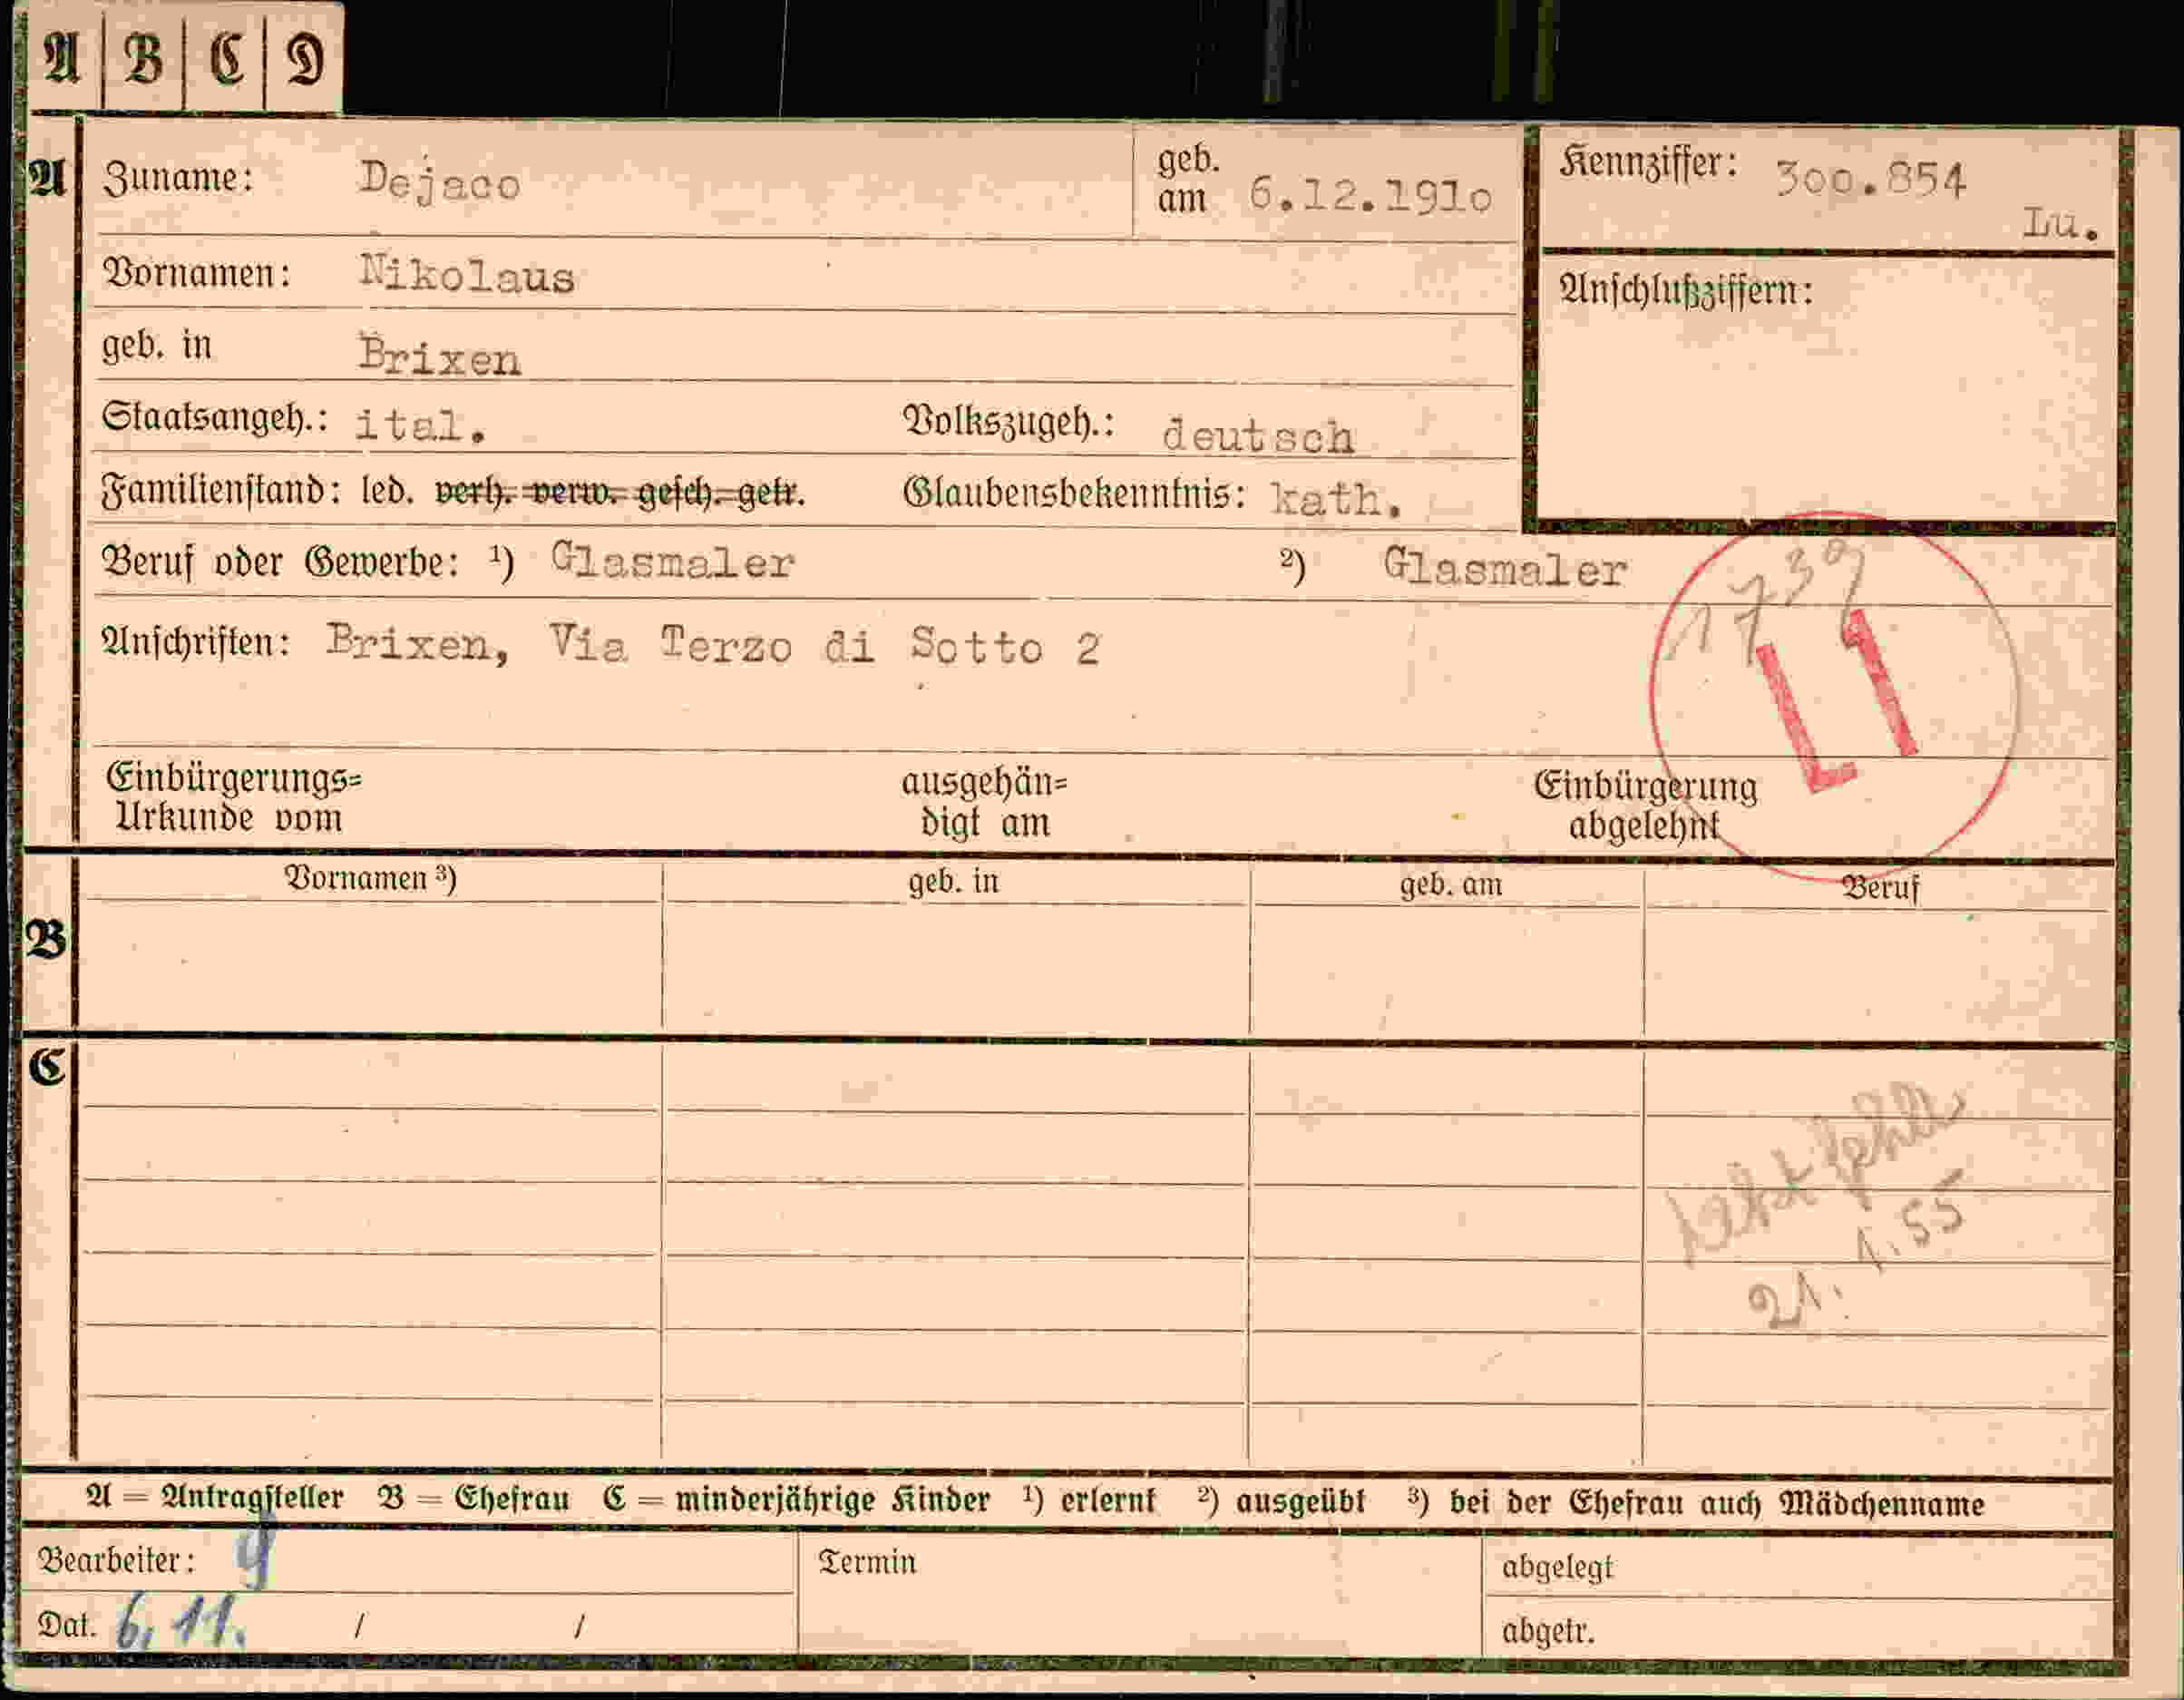 A B C D
A Zuname: Dejaco geb. am 6.12.191o Kennziffer: 3oo.854 Lu.
Vornamen: Nikolaus Anschlußziffern:
geb. in Brixen
Staatsangeh.: ital. Volkszugeh.: deutsch
Familienstand: led. verh. verw. gesch. getr. Glaubensbekenntnis: kath.
Beruf oder Gewerbe: ¹) Glasmaler ²) Glasmaler
1739
Anschriften: Brixen, Via Terzo di Sotto 2
Einbürgerungs= ausgehän= Einbürgerung
Urkunde vom digt am abgelehnt
Vornamen ³) geb. in geb. am Beruf
B
C
21. 1. 55
A = Antragsteller B = Ehefrau C = minderjährige Kinder ¹) erlernt ²) ausgeübt ³) bei der Ehefrau auch Mädchenname
Bearbeiter: Termin abgelegt
Dat. 6. 11. / / abgetr.